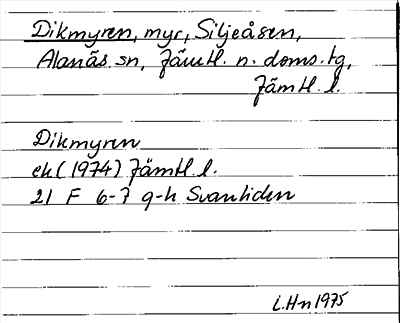 Dikmyren, myr, Siljeåsen,
Alanäs sn, Jämtl. n. doms. tg,
Jämtl. l.
Dikmyren
ek (1974) Jämtl. l.
21 F 6-7 g-h Svanliden
L.Hn 1975